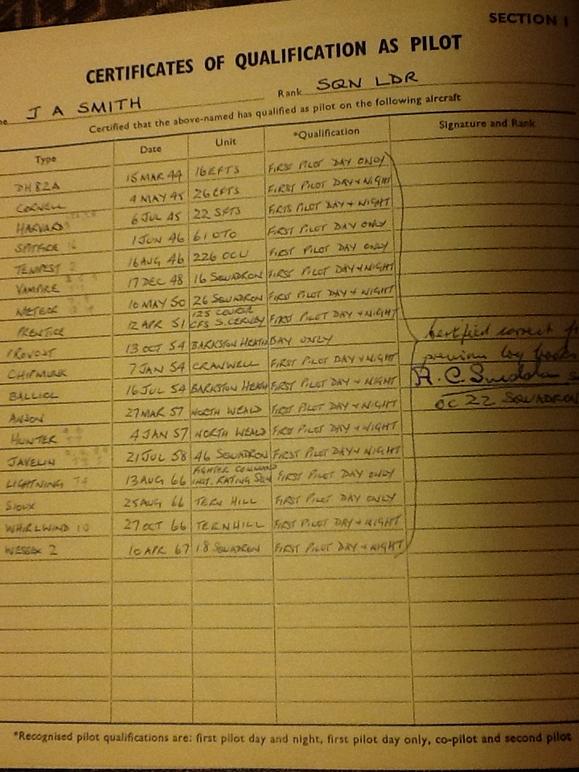 SECTION 1
CERTIFICATES OF QUALIFICATION AS PILOT
J A SMITH Rank SQN LDR
Certified that the above-named has qualified as pilot on the following aircraft
Type Date Unit *Qualification Signature and Rank
DH82A 15 MAR 44 16 EFTS FIRST PILOT DAY ONLY
CORNELL 4 MAY 45 26 EFTS FIRST PILOT DAY + NIGHT
HARVARD 6 JUL 45 22 SFTS FIRTS PILOT DAY + NIGHT
SPITFIRE 16 1 JUN 46 61 OTU FIRST PILOT DAY ONLY
TEMPEST 2 16 AUG 46 226 OCU FIRST PILOT DAY ONLY
VAMPIRE 17 DEC 48 16 SQUADRON FIRST PILOT DAY + NIGHT
METEOR 10 MAY 50 26 SQUADRON FIRST PILOT DAY + NIGHT
PRENTICE 12 APR 51 125 COURSE CFS S. CERNEY FIRST PILOT DAY + NIGHT
PROVOST 13 OCT 54 BARKSTON HEATH DAY ONLY
CHIPMUNK 7 JAN 54 CRANWELL FIRST PILOT DAY + NIGHT
BALLIOL 16 JUL 54 BARKSTON HEATH FIRST PILOT DAY + NIGHT
ANSON 27 MAR 57 NORTH WEALD FIRST PILOT DAY + NIGHT
HUNTER 4 JAN 57 NORTH WEALD FIRST PILOT DAY + NIGHT
JAVELIN 21 JUL 58 46 SQUADRON FIRST PILOT DAY + NIGHT
LIGHTNING T4 13 AUG 66 FIGHTER COMMAND INST. RATING SQN FIRST PILOT DAY ONLY
SIOUX 25 AUG 66 TERN HILL FIRST PILOT DAY ONLY
WHIRLWIND 10 27 OCT 66 TERNHILL FIRST PILOT DAY + NIGHT
WESSEX 2 10 APR 67 18 SQUADRON FIRST PILOT DAY + NIGHT
Certified correct
previous log books
OC 22 SQUADRON
*Recognised pilot qualifications are: first pilot day and night, first pilot day only, co-pilot and second pilot